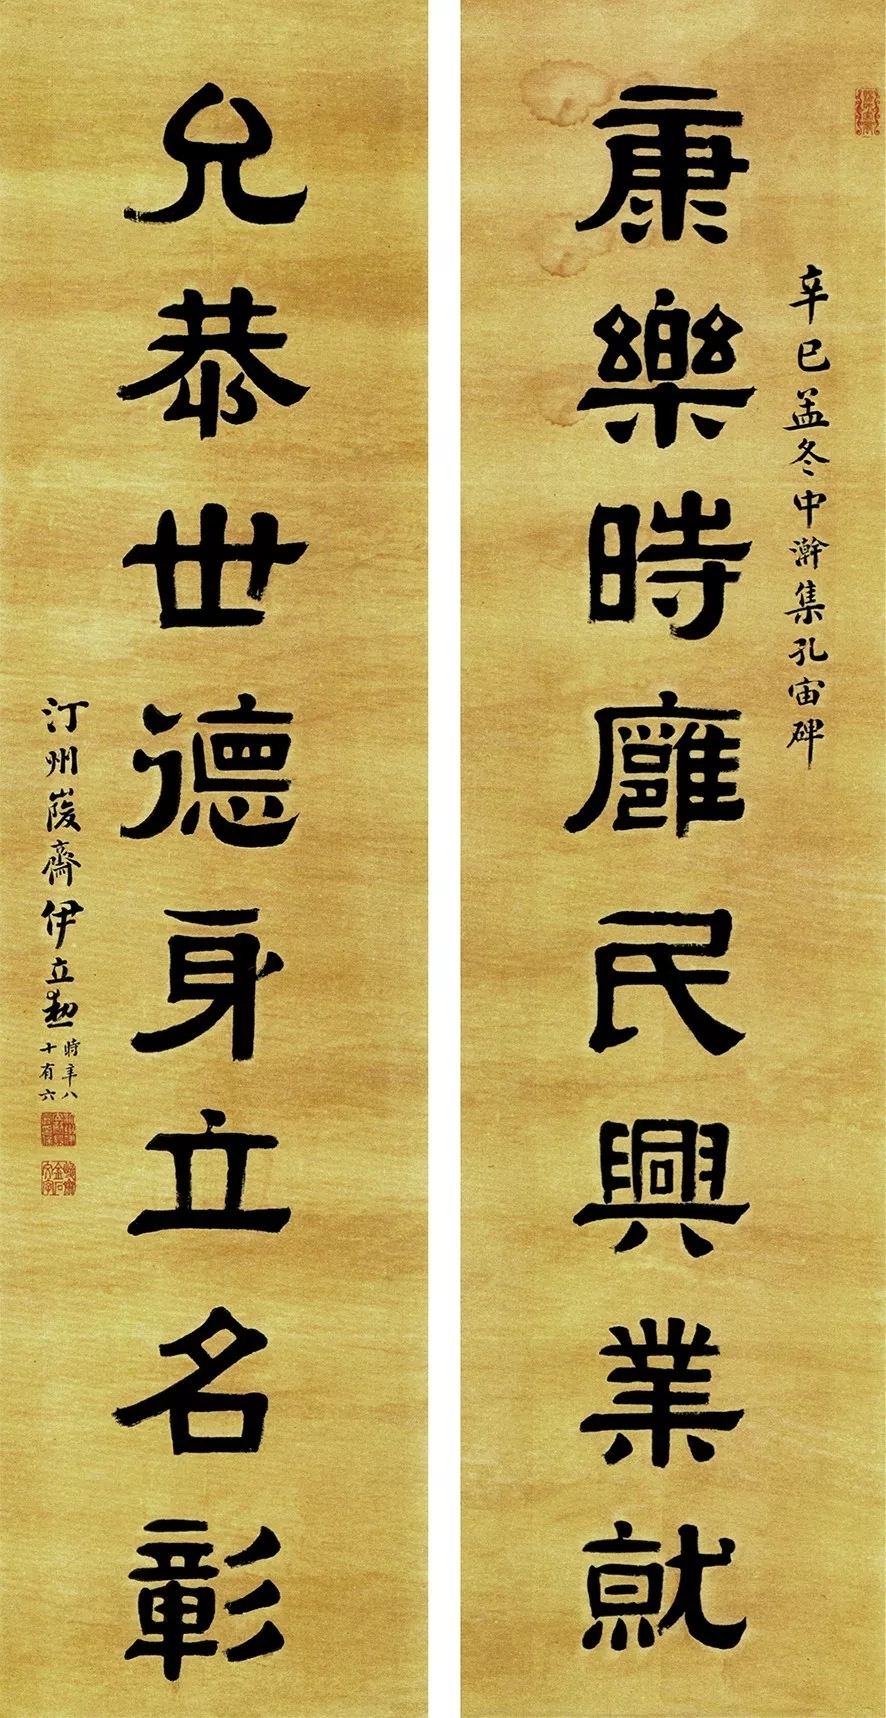 康樂時廱民興業就
辛巳孟冬中澣集孔宙碑
允恭世德身立名彰
汀州峻齋伊立勳
時年八
十有六